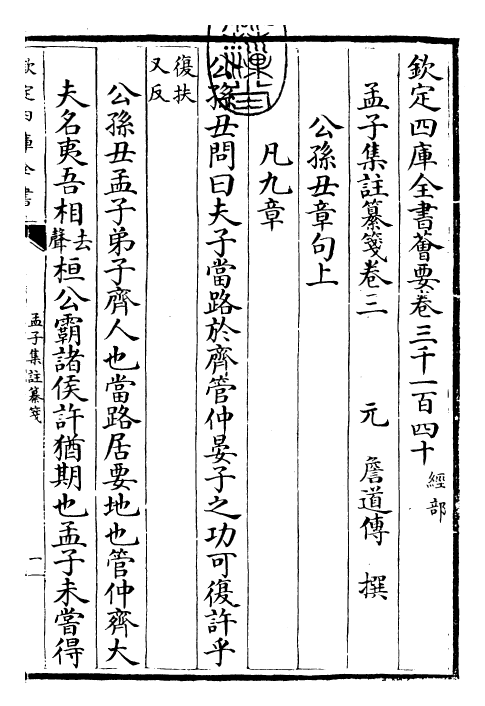 欽定四庫全書薈要卷三千一百四十 經部
孟子集註纂箋卷三 元 詹道傳 撰
公孫丑章句上
凡九章
公孫丑問曰夫子當路於齊管仲晏子之功可復許乎
復扶
又反
公孫丑孟子弟子齊人也當路居要地也管仲齊大
夫名夷吾相去聲桓公霸諸侯許猶期也孟子未嘗得
欽定四庫全書
孟子集註纂箋
一